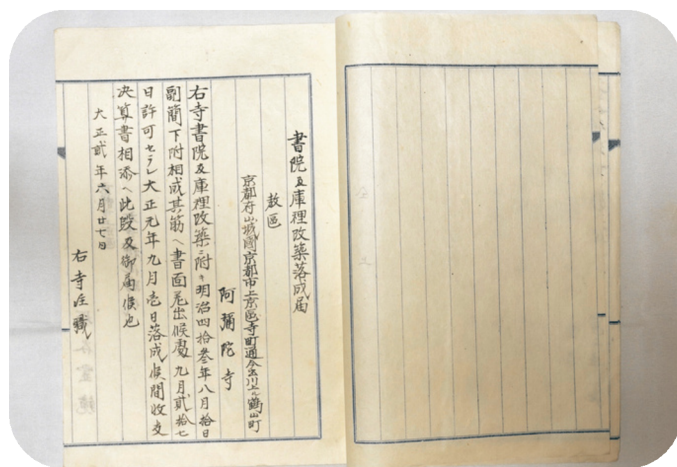 書院及庫裡改築落成届
敎區
京都府山城國京都市上京區寺町通今出川上ル鶴山町
阿彌陀寺
右寺書院及庫裡改築ニ附キ明治四拾叁年八月拾日
副簡下附相成其筋ヘ書面差出候處九月貳拾七
日許可セラレ大正元年九月壱日落成候間收支
決算書相添ヘ此段及御届候也
大正貳年六月廿七日
右寺住職